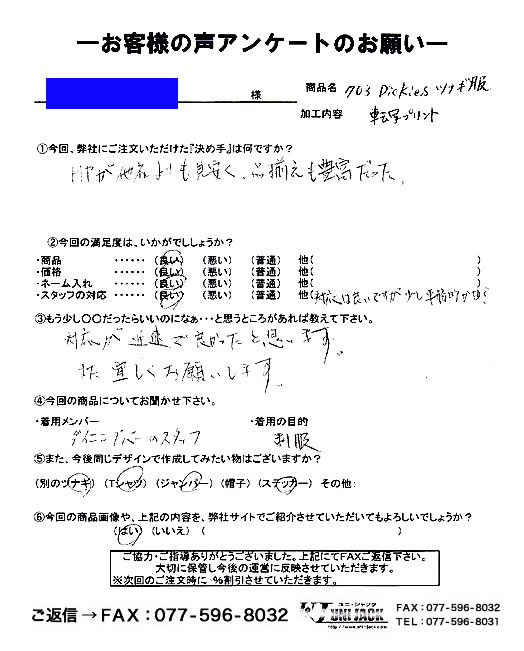 ―お客様の声アンケートのお願い―
様
商品名 703 Dickies ツナギ服
加工内容 転写プリント
①今回、弊社にご注文いただけた『決め手』は何ですか？
HPが他社よりも見安く、品揃えも豊富だった。
②今回の満足度は、いかがでしょうか？
・商品 ・・・・・・ (良い) (悪い) (普通) 他( )
・価格 ・・・・・・ (良い) (悪い) (普通) 他( )
・ネーム入れ ・・・・・・ (良い) (悪い) (普通) 他( )
・スタッフの対応 ・・・・・・ (良い) (悪い) (普通) 他(対応は良いですが少し事務的かな?)
③もう少し〇〇だったらいいのになぁ・・・と思うところがあれば教えて下さい。
対応が迅速で良かったと思います。
また宜しくお願いします。
④今回の商品についてお聞かせ下さい。
・着用メンバー ・着用の目的
ダイニングバーのスタッフ 制服
⑤また、今後同じデザインで作成してみたい物はございますか？
(別のツナギ) (Tシャツ) (ジャンパー) (帽子) (ステッカー) その他:
⑥今回の商品画像や、上記の内容を、弊社サイトでご紹介させていただいてもよろしいでしょうか？
(はい) (いいえ) ( )
ご協力・ご指導ありがとうございました。上記にてFAXご返信下さい。
大切に保管し今後の運営に反映させていただきます。
※次回のご注文時に %割引させていただきます。
ご返信→FAX：077-596-8032
ユニ・ジャック
UNIJACK
FAX：077-596-8032
TEL：077-596-8031